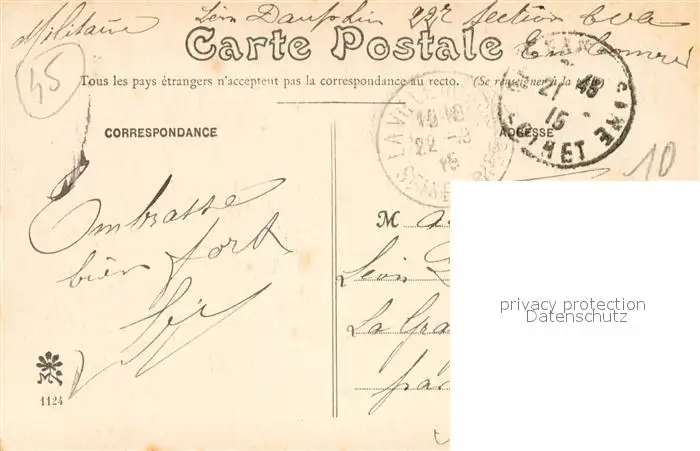 Militaire Léon Dauphin 22e Section C.O.A.
Carte Postale
45
Tous les pays étrangers n'acceptent pas la correspondance au recto. (Se renseigner à la poste)
CORRESPONDANCE
ADRESSE
21
15
LOIRET
LA VILLE
22
15
10
Embrasse
bien fort
M
Léon
La Gra
par
1124
privacy protection
Datenschutz